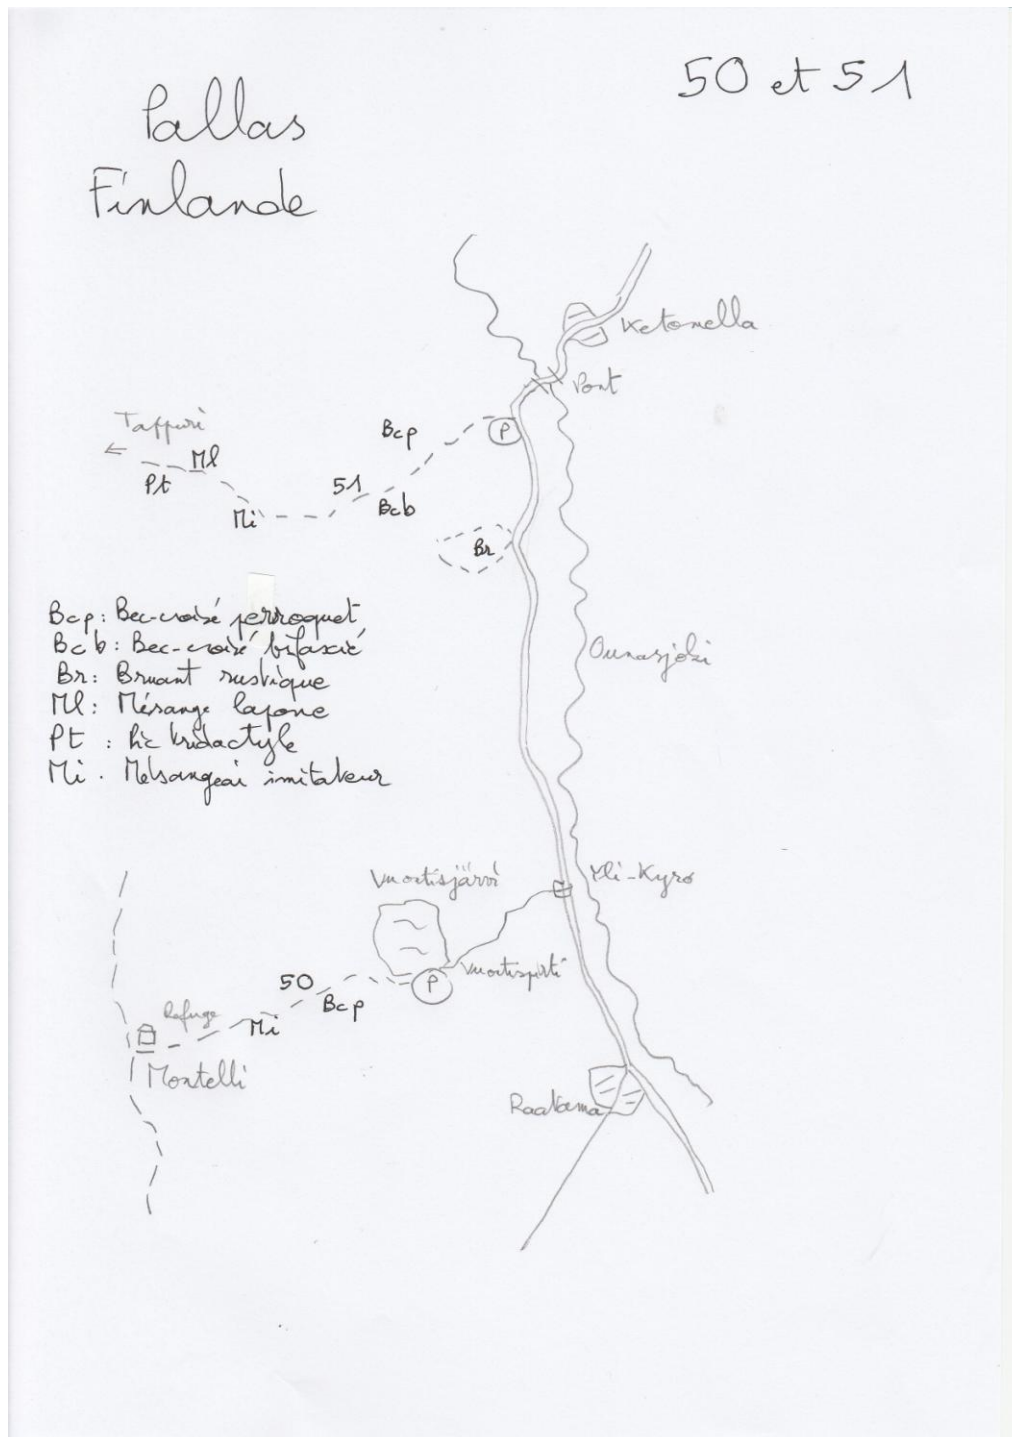 50 et 51
Pallas
Finlande
Ketomella
Pont
Tappuri
Bcp
P
Ml
Pt
51
Bcb
Mi
Br
Bcp : Bec-croisé perroquet
Bcb : Bec-croisé bifascié
Br : Bruant rustique
Ml : Mésange lapone
Pt : Pic tridactyle
Mi . Mésangeai imitateur
Ounasjoki
Vuontisjärvi
Yli-Kyrö
Vuontispirti
50
P
Bcp
Refuge
Mi
Montelli
Raatama